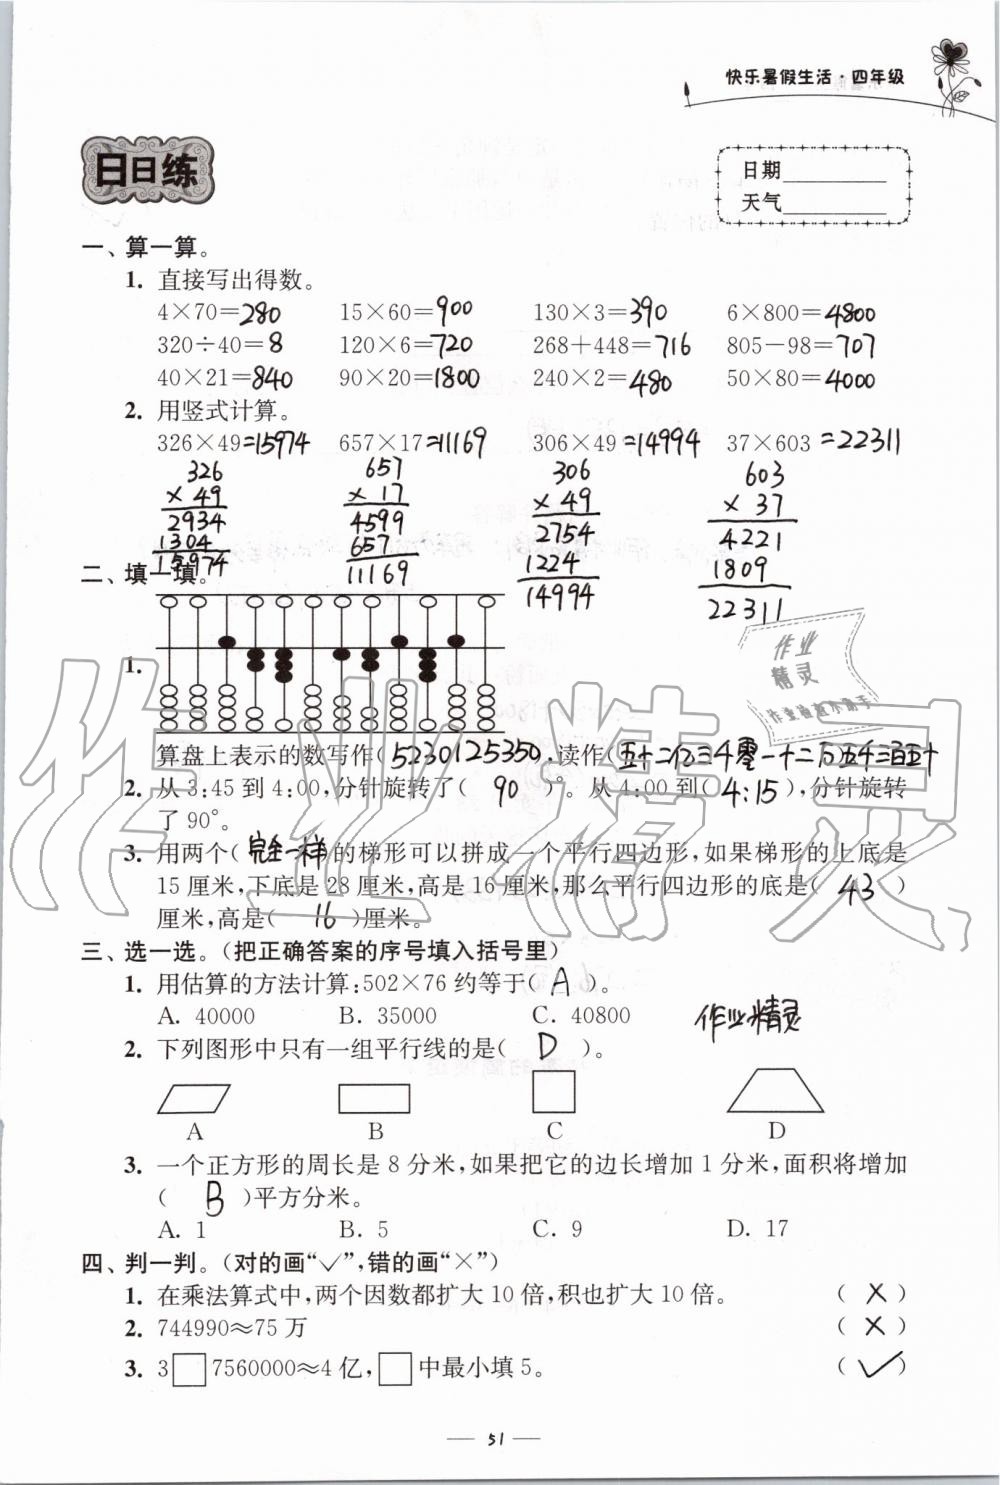 快乐暑假生活·四年级
日日练
日期
天气
一、算一算。
1. 直接写出得数。
4×70=280 15×60=900 130×3=390 6×800=4800
320÷40=8 120×6=720 268+448=716 805-98=707
40×21=840 90×20=1800 240×2=480 50×80=4000
2. 用竖式计算。
326×49=15974 657×17=11169 306×49=14994 37×603=22311
326 657 306 603
×49 ×17 ×49 ×37
2934 4599 2754 4221
1304 657 1224 1809
15974 11169 14994 22311
二、填一填。
1.
算盘上表示的数写作(5230125350),读作(五十二亿三千零一十二万五千三百五十
2. 从3:45到4:00,分针旋转了(90)°。从4:00到(4:15),分针旋转
了90°。
3. 用两个(完全一样的梯形可以拼成一个平行四边形,如果梯形的上底是
15厘米,下底是28厘米,高是16厘米,那么平行四边形的底是(43)
厘米,高是(16)厘米。
三、选一选。(把正确答案的序号填入括号里)
1. 用估算的方法计算:502×76约等于(A)。
A. 40000 B. 35000 C. 40800
作业精灵
2. 下列图形中只有一组平行线的是(D)。
A B C D
3. 一个正方形的周长是8分米,如果把它的边长增加1分米,面积将增加
(B)平方分米。
A. 1 B. 5 C. 9 D. 17
四、判一判。(对的画“✓”,错的画“×”)
1. 在乘法算式中,两个因数都扩大10倍,积也扩大10倍。 (×)
2. 744990≈75万 (×)
3. 3□7560000≈4亿,□中最小填5。 (✓)
51
作业精灵
作业
精灵